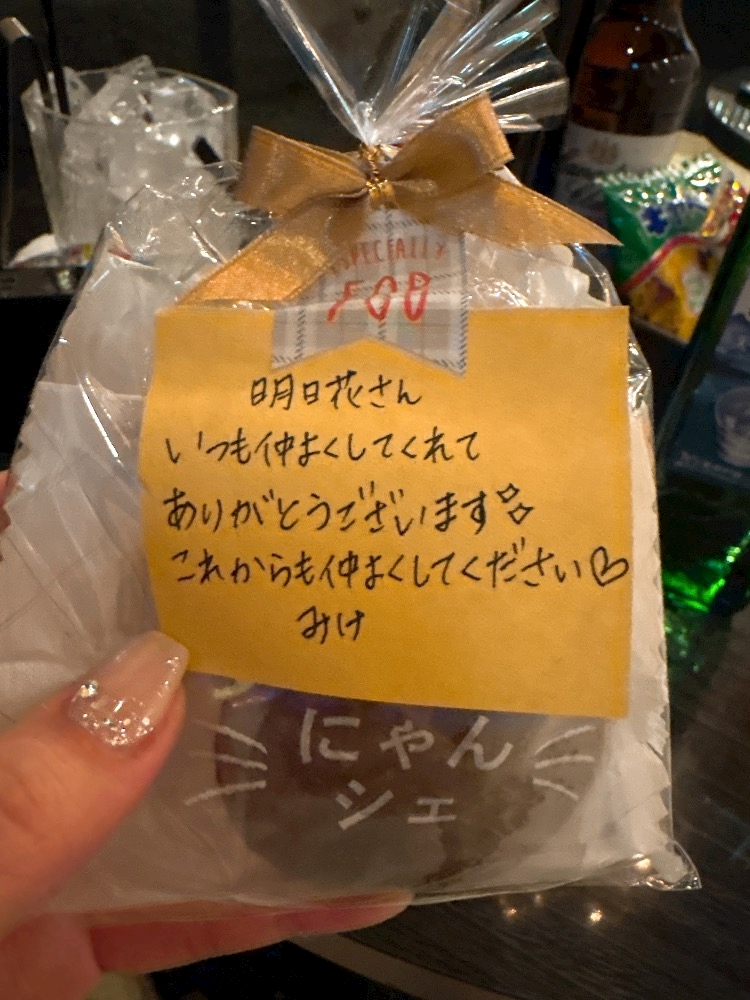 SPECIALLY
FOR
明日花さん
いつも仲よくしてくれて
ありがとうございます
これからも仲よくしてください♡
みけ
にゃん
シェ